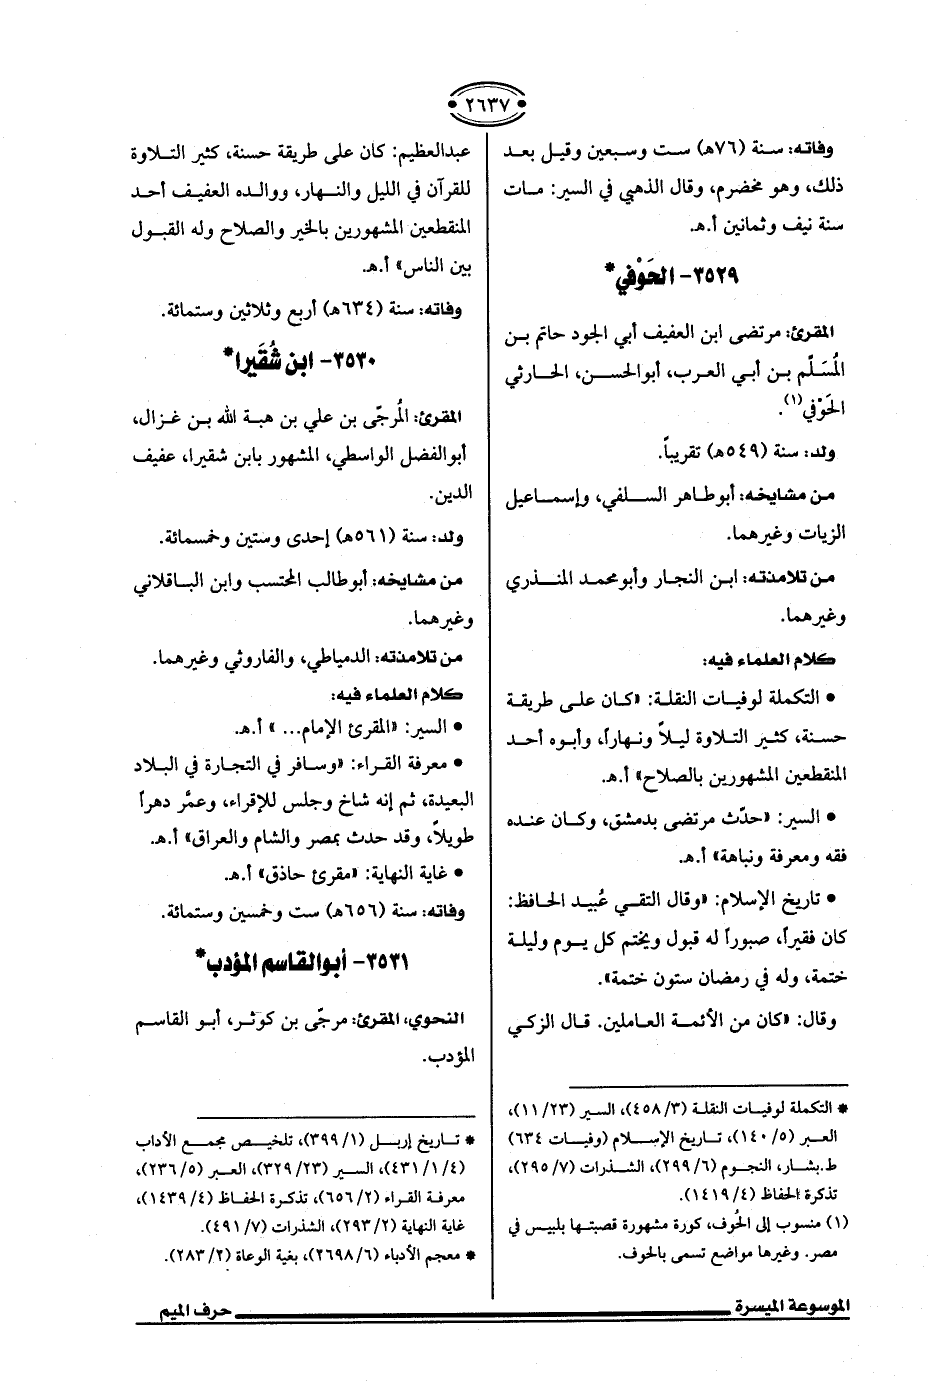 ٢٦٣٧
وفاته: سنة (٧٦هـ) ست وسبعين وقيل بعد
ذلك، وهو مخضرم، وقال الذهبي في السير: مات
سنة نيف وثمانين أ.هـ.
٣٥٢٩- الحَوْفي*
المقرئ: مرتضى ابن العفيف أبي الجود حاتم بن
المُسَلَّم بن أبي العرب، أبوالحسن، الحارثي
الحَوْفي(١).
ولد: سنة (٥٤٩هـ) تقريباً.
من مشايخه: أبوطاهر السلفي، وإسماعيل
الزيات وغيرهما.
من تلامذته: ابن النجار وأبومحمد المنذري
وغيرهما.
كلام العلماء فيه:
• التكملة لوفيات النقلة: «كان على طريقة
حسنة، كثير التلاوة ليلاً ونهاراً، وأبوه أحد
المنقطعين المشهورين بالصلاح» أ.هـ.
• السير: «حدّث مرتضى بدمشق، وكان عنده
فقه ومعرفة ونباهة» أ.هـ.
• تاريخ الإسلام: «وقال التقي عُبيد الحافظ:
كان فقيراً، صبوراً له قبول ويختم كل يوم وليلة
ختمة، وله في رمضان ستون ختمة».
وقال: «كان من الأئمة العاملين. قال الزكي
* التكملة لوفيات النقلة (٣/ ٤٥٨)، السير (٢٣/ ١١)،
العبر (٥/ ١٤٠)، تاريخ الإسلام (وفيات ٦٣٤)
ط.بشار، النجوم (٦/ ٢٩٩)، الشذرات (٧/ ٢٩٥)،
تذكرة الحفاظ (٤/ ١٤١٩).
(١) منسوب إلى الحُوف، كورة مشهورة قصبتها بلبيس في
مصر. وغيرها مواضع تسمى بالحوف.
عبدالعظيم: كان على طريقة حسنة، كثير التلاوة
للقرآن في الليل والنهار، ووالده العفيف أحد
المنقطعين المشهورين بالخير والصلاح وله القبول
بين الناس» أ.هـ.
وفاته: سنة (٦٣٤هـ) أربع وثلاثين وستمائة.
٣٥٣٠- ابن شُقَيرا*
المقرئ: المُرجّى بن علي بن هبة الله بن غزال،
أبوالفضل الواسطي، المشهور بابن شقيرا، عفيف
الدين.
ولد: سنة (٥٦١هـ) إحدى وستين وخمسمائة.
من مشايخه: أبوطالب المحتسب وابن الباقلاني
وغيرهما.
من تلامذته: الدمياطي، والفاروثي وغيرهما.
كلام العلماء فيه:
• السير: «المقرئ الإمام... » أ.هـ.
• معرفة القراء: «وسافر في التجارة في البلاد
البعيدة، ثم إنه شاخ وجلس للإقراء، وعمَّر دهراً
طويلاً، وقد حدث بمصر والشام والعراق» أ.هـ.
• غاية النهاية: «مقرئ حاذق» أ.هـ.
وفاته: سنة (٦٥٦هـ) ست وخمسين وستمائة.
٣٥٣١- أبوالقاسم المؤدب*
النحوي، المقرئ: مرجّى بن كوثر، أبو القاسم
المؤدب.
* تاريخ إربل (١/ ٣٩٩)، تلخيص مجمع الأداب
(٤/ ١/ ٤٣١)، السير (٢٣/ ٣٢٩)، العبر (٥/ ٢٣٦)،
معرفة القراء (٢/ ٦٥٦)، تذكرة الحفاظ (٤/ ١٤٣٩)،
غاية النهاية (٢/ ٢٩٣)، الشذرات (٧/ ٤٩١).
* معجم الأدباء (٦/ ٢٦٩٨)، بغية الوعاة (٢/ ٢٨٣).
الموسوعة الميسرة
حرف الميم